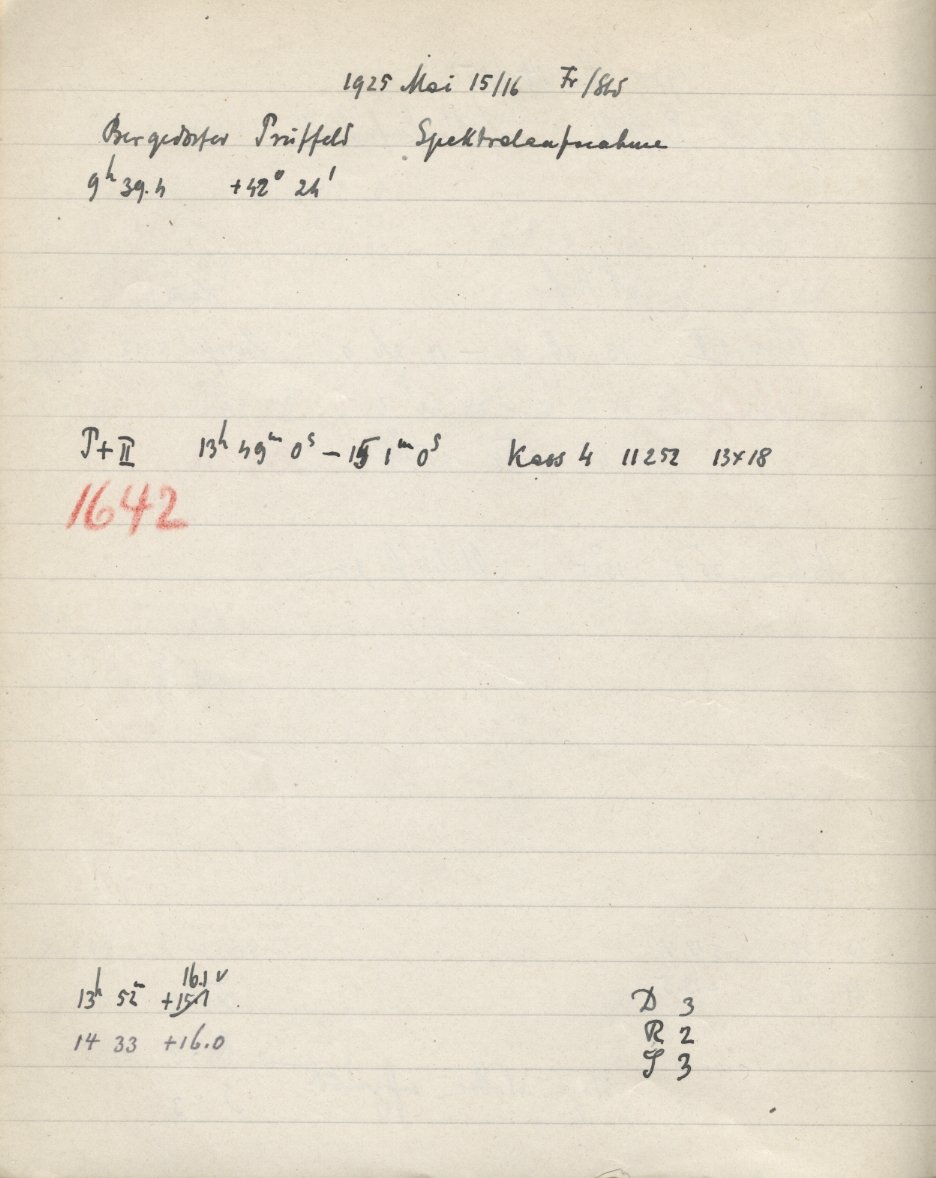 1925 Mai 15/16 Fr/Std
Bergedorfer Prüffeld Spektralaufnahme
9h 39.4 +42° 24'
P+II 13h 49m 0s – 15 1m 0s Kass 4 11252 13×18
1642
16.1 v
13h 52m +15.1
14 33 +16.0
D 3
R 2
S 3